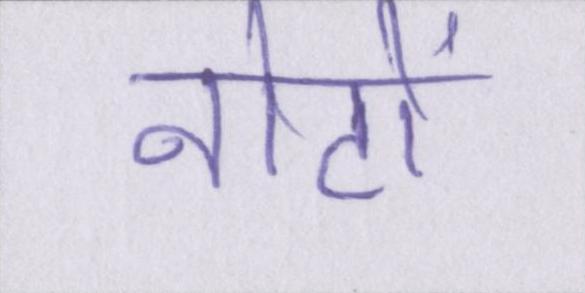 नोटों